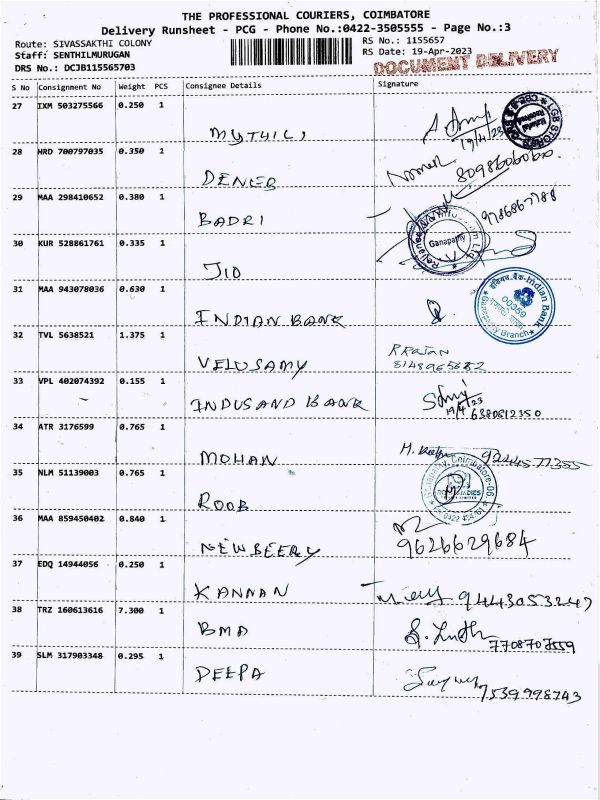 THE PROFESSIONAL COURIERS, COIMBATORE
Delivery Runsheet - PCG - Phone No.:0422-3505555 - Page No.:3
Route: SIVASSAKTHI COLONY
RS No.: 1155657
Staff: SENTHILMURUGAN
RS Date: 19-Apr-2023
DRS No.: DCJB115565703
DOCUMENT DELIVERY
S No Consignment No Weight PCS Consignee Details Signature
27 IXM 503275566 0.250 1
MYTHILI
19/4/23
28 HRD 700797035 0.350 1
DENEB
29 MAA 298410652 0.380 1
BADRI
Ganapathy
30 KUR 528861761 0.335 1
JIO
31 MAA 943078036 0.630 1
INDIAN BANK
इंडियन बैंक-Indian Bank
00350
Ganapathy Branch
32 TVL 5638521 1.375 1
VELUSAMY
R RAJAN
8148965682
33 VPL 402074392 0.155 1
INDUSAND BANK
19/4/23
6380812350
34 ATR 3176599 0.765 1
MOHAN
35 NLM 51139003 0.765 1
ROOB
Ganapathy, Coimbatore-06
36 MAA 859450402 0.840 1
NEWBEERY
9626629684
37 EDQ 14944056 0.250 1
KANNAN
9443053247
38 TRZ 160613616 7.300 1
BMA
7708707559
39 SLM 317903348 0.295 1
DEEPA
7539998743